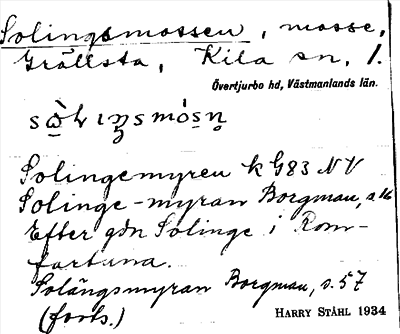 Solingsmossen, mosse,
Grällsta, Kila sn, 1.
Övertjurbo hd, Västmanlands län.
Solingemyren k G83 NV
Solinge-myran Borgman, s. 16
Efter gdn Solinge i Rom-
fartuna.
Solängsmyran Borgman, s. 57
(forts.) HARRY STÅHL 1934